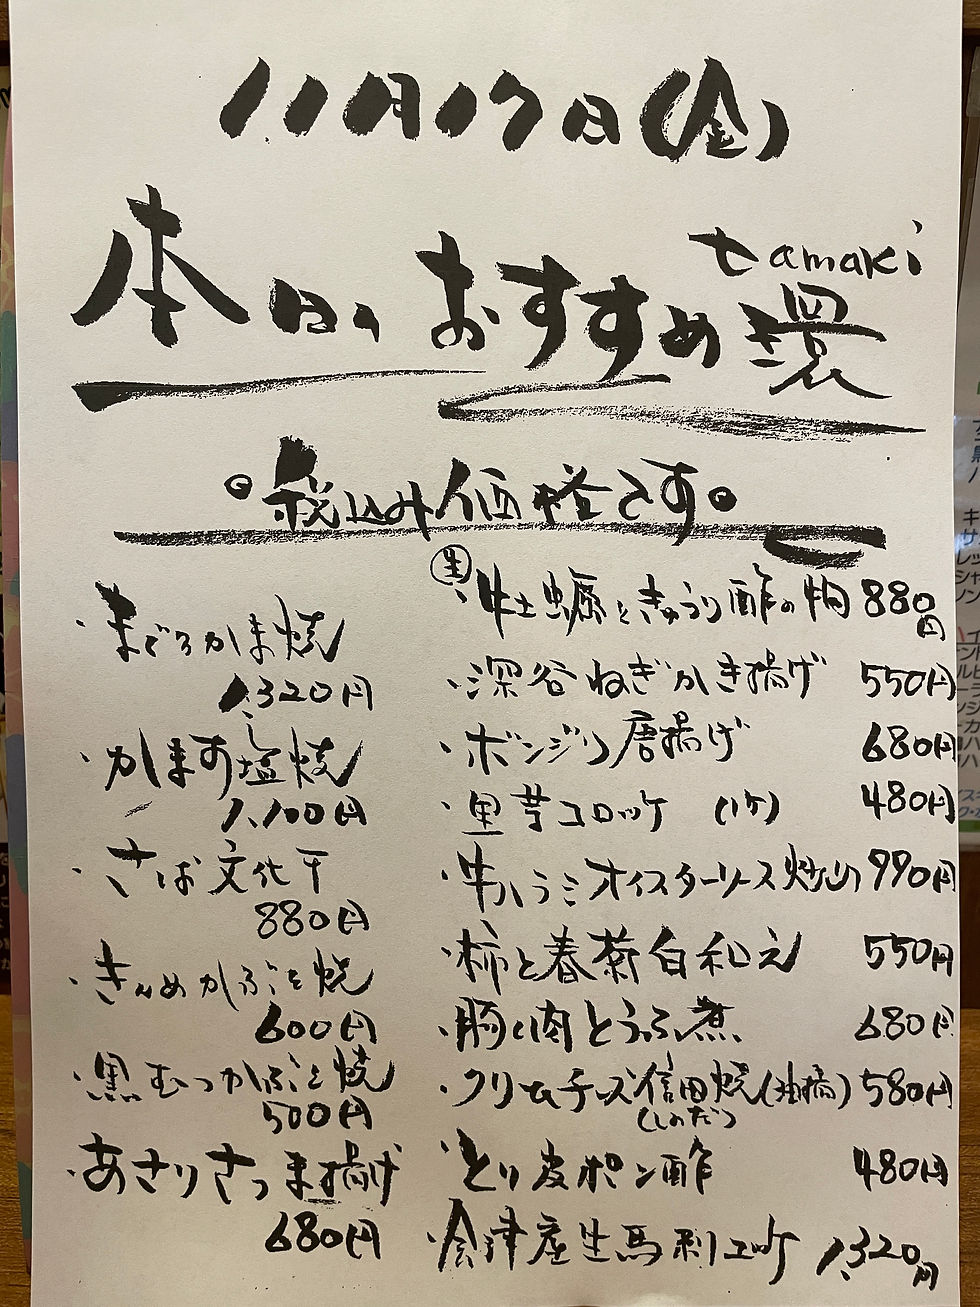 11月17日(金)
本日のおすすめ
tamaki
環
税込み価格です
・まぐろかま焼
1,320円
・かます塩焼
1,100円
・さば文化干
880円
・きんめかぶと焼
600円
・黒むつかぶと焼
500円
・あさりさつま揚げ
680円
・生 牡蠣ときゅうり酢の物 880円
・深谷ねぎかき揚げ 550円
・ボンジリ唐揚げ 680円
・里芋コロッケ (1ケ) 480円
・牛ハラミオイスターソース炒め 990円
・柿と春菊白和え 550円
・豚肉とうふ煮 680円
・クリームチーズ信田焼(油揚) 580円
(しのだ)
・とり皮ポン酢 480円
・会津産生馬刺ユッケ 1,320円